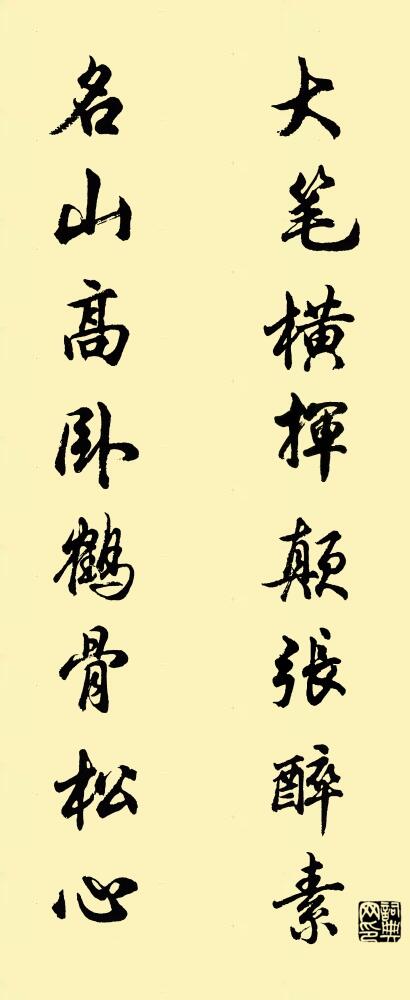 大笔横揮顛張醉素
名山高卧鶴骨松心
詞典
网印